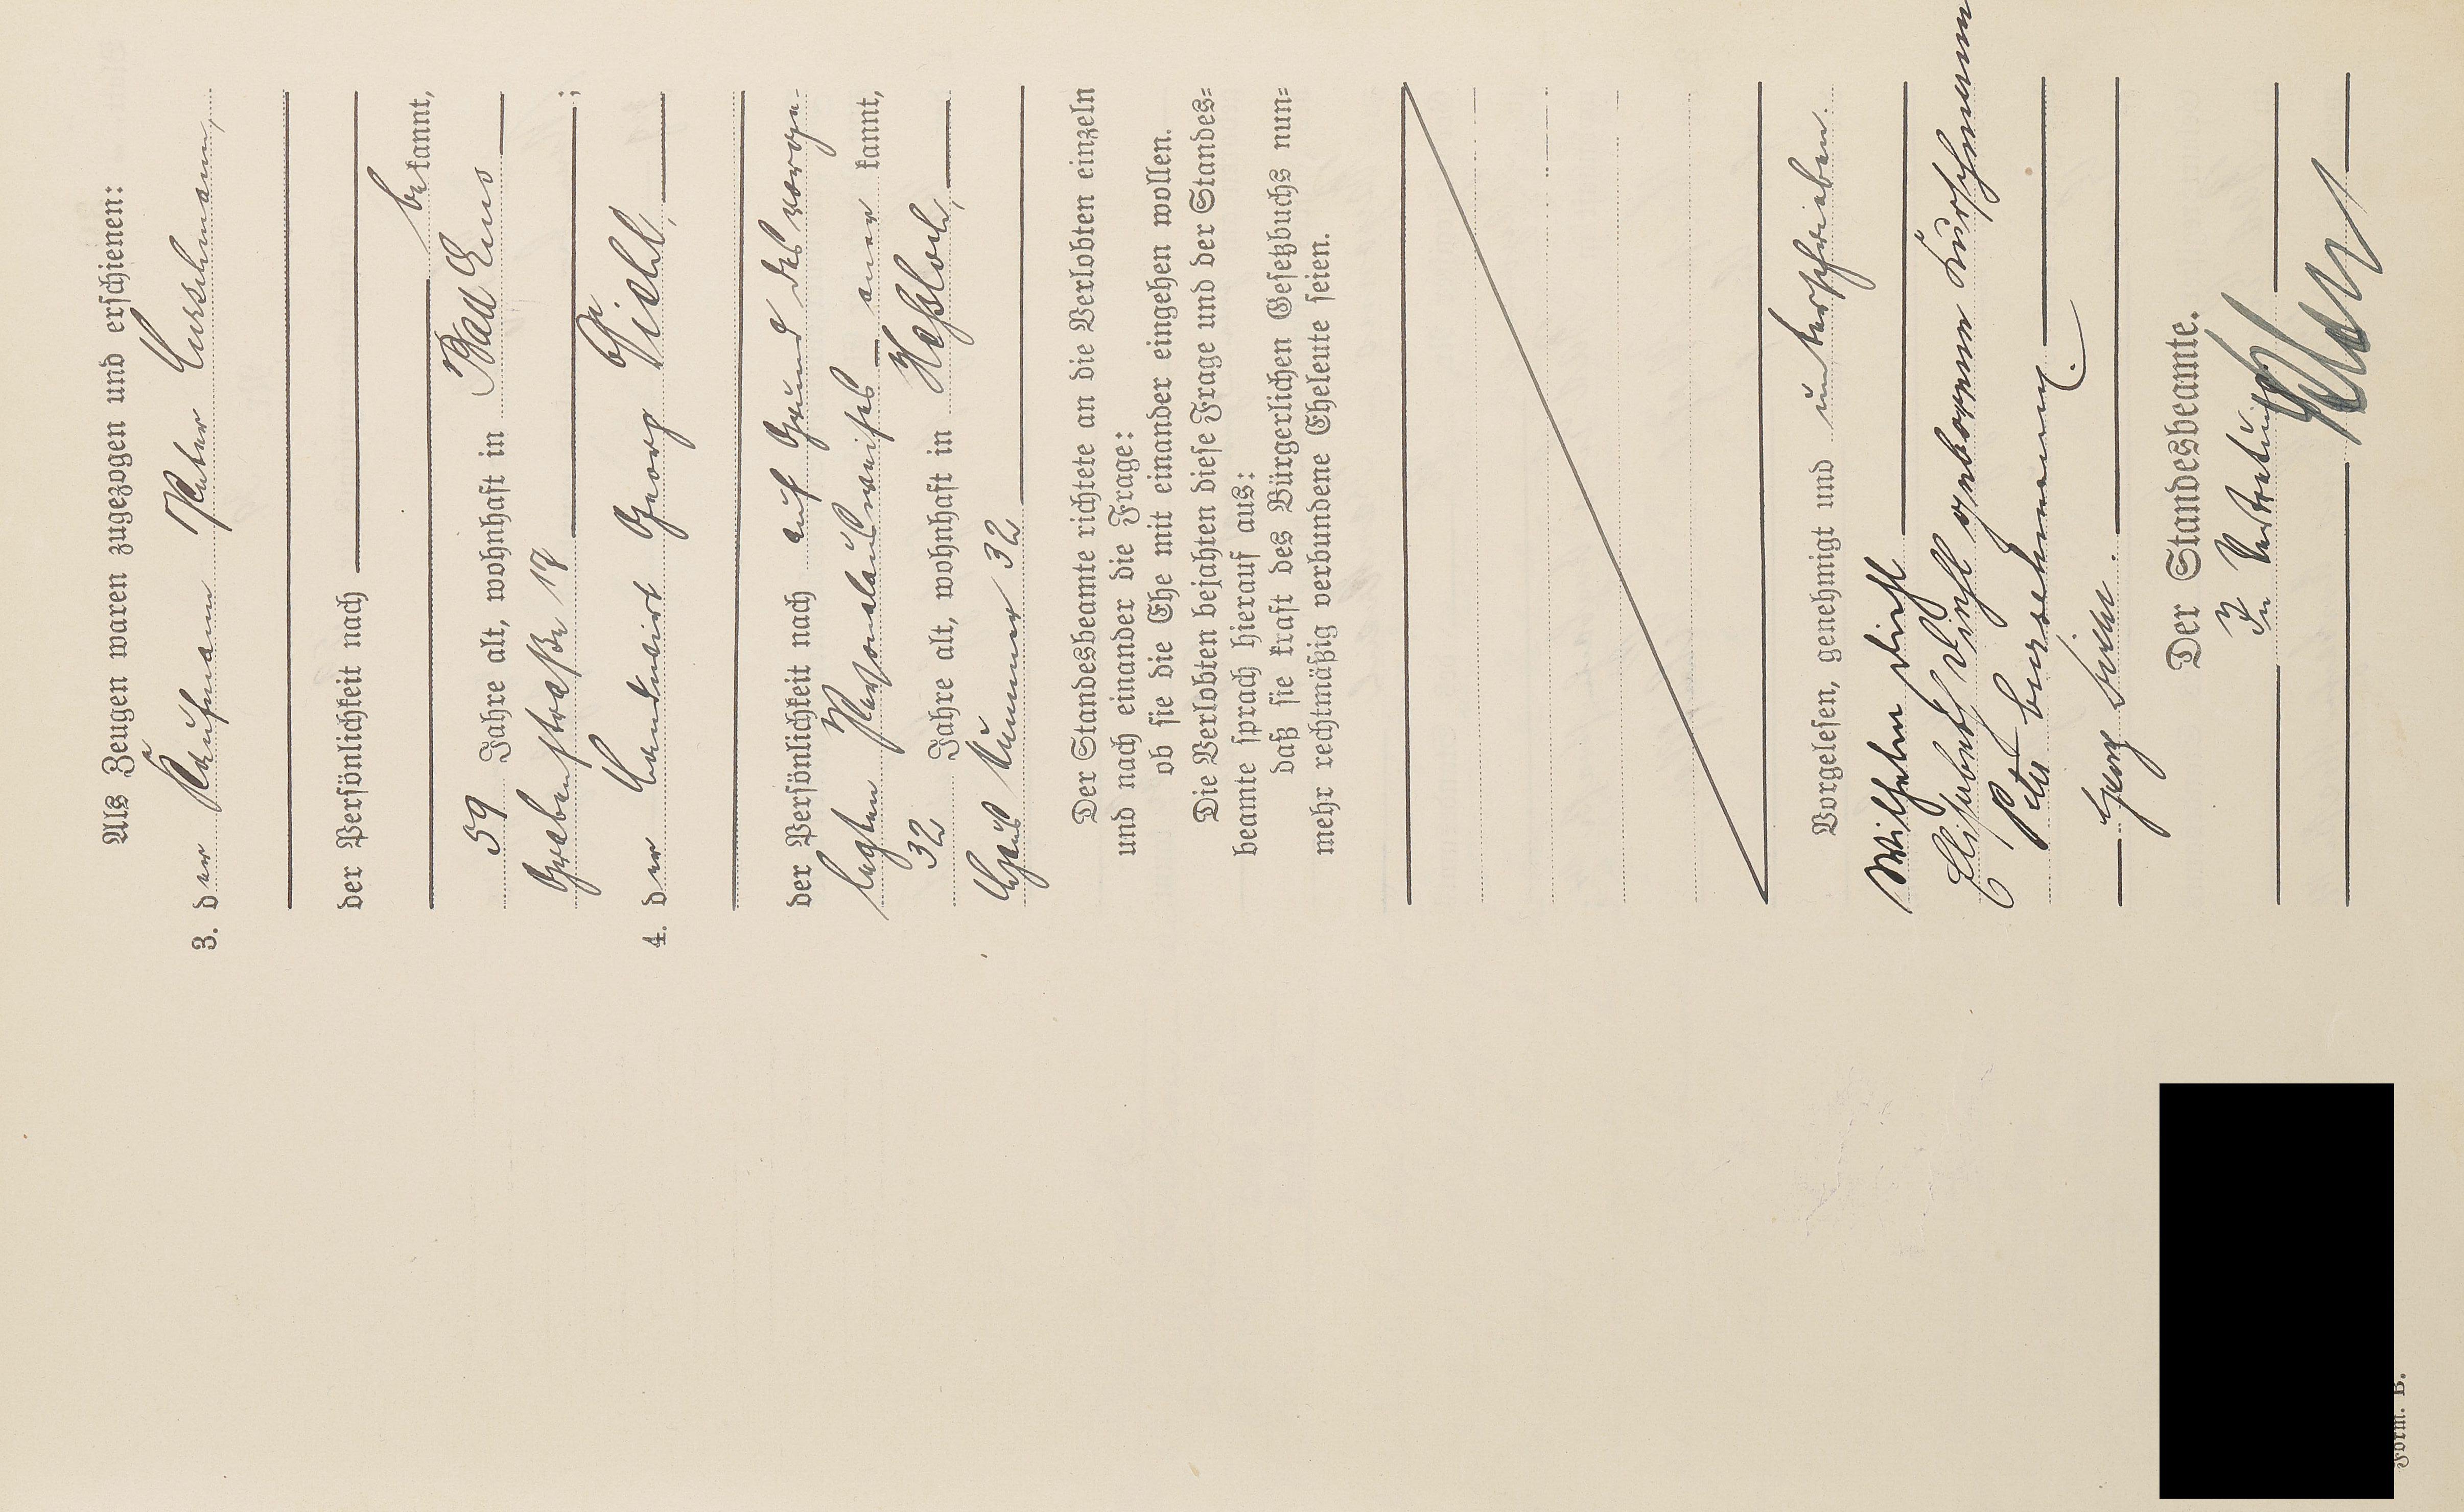 Als Zeugen waren zugezogen und erschienen:
3. der Kaufmann Peter Curschmann,
der Persönlichkeit nach
bekannt,
59 Jahre alt, wohnhaft in Bad Ems
Grabenstraße 18 ;
4. der Landwirt Georg Diehl,
der Persönlichkeit nach auf Grund des vorge-
legten Personalausweises aner kannt,
32 Jahre alt, wohnhaft in Heßloch,
Haus Nummer 32
Der Standesbeamte richtete an die Verlobten einzeln
und nach einander die Frage:
ob sie die Ehe mit einander eingehen wollen.
Die Verlobten bejahten diese Frage und der Standes=
beamte sprach hierauf aus:
daß sie kraft des Bürgerlichen Gesetzbuchs nun=
mehr rechtmäßig verbundene Eheleute seien.
Vorgelesen, genehmigt und unterschrieben.
Wilhelm Diehl
Elisabeth Diehl geborenen Kurschmann
Peter Curschmann.
Georg Diehl.
Der Standesbeamte.
In Vertretung
Form. B.